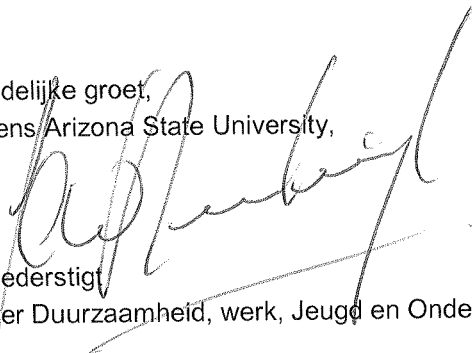 delijke groet,
ens Arizona State University,
ederstigt
er Duurzaamheid, werk, Jeugd en Onde